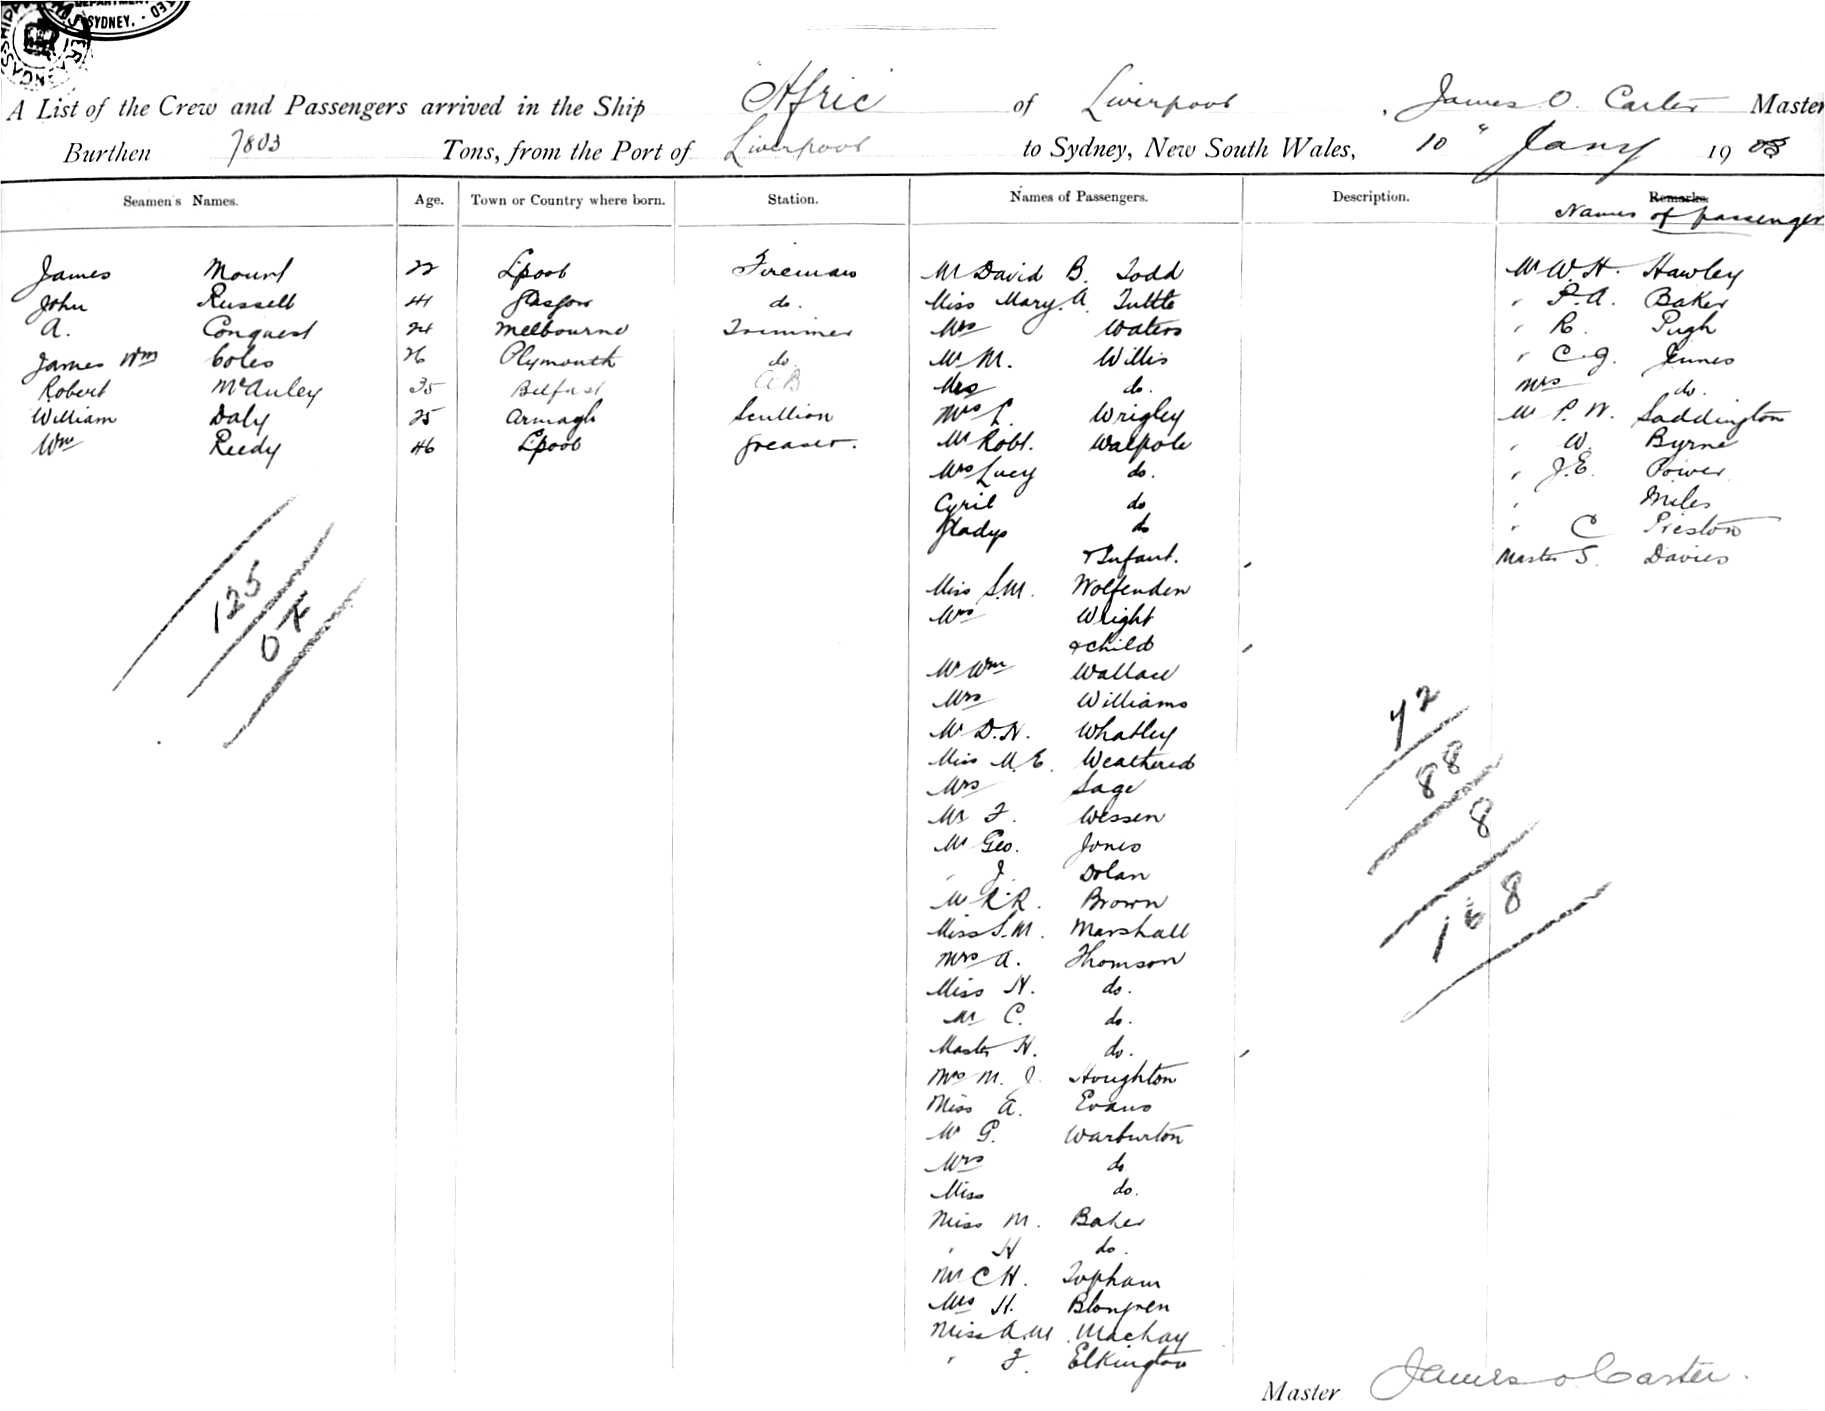 DEPARTMENT
SYDNEY.
A List of the Crew and Passengers arrived in the Ship Afric of Liverpool, James O. Carter Master
Burthen 7803 Tons, from the Port of Liverpool to Sydney, New South Wales, 10" Jany 1903
Seamen's Names. Age. Town or Country where born. Station. Names of Passengers. Description. Remarks.
Names of passengers
James Mount 22 L'pool Fireman Mr David B. Todd Mr W.H. Hawley
John Russell 41 Glasgow do. Miss Mary. A. Tuttle " P.A. Baker
A. Conquest 24 Melbourne Trimmer Mrs Waters " R. Pugh
James Wm Coles 26 Plymouth do. Mr M. Willis " C.G. Jennes
Robert McAuley 35 Belfast A B Mrs do. Mrs do.
William Daly 25 Armagh Scullion Mrs L. Wrigley Mr P. W. Saddington
Wm Reedy 46 L'pool Greaser. Mr Robt. Walpole " W. Byrne
Mrs Lucy do. " J.E. Power
Cyril do " Miles
Gladys do " C Preston
& Infant. Master S. Davies
Miss S.M. Wolfenden
Mrs Wright
& child
Mr Wm Wallace
Mrs Williams
Mr D.H. Whatley
Miss M.E. Weathered
Mrs Sage
Mr F. Wessen
Mr Geo. Jones
" J. Dolan
Mr R.R. Brown
Miss S.M. Marshall
Mrs A. Thomson
Miss H. do.
Mr C. do.
Master H. do.
Mrs M. J. Houghton
Miss A. Evans
Mr G. Warburton
Mrs do
Miss do.
Miss M. Baker
" H do.
Mr C H. Topham
Mrs H. Blongren
Miss A.M. Mackay
" F. Elkington
125
OK
72
88
8
168
Master James O Carter.